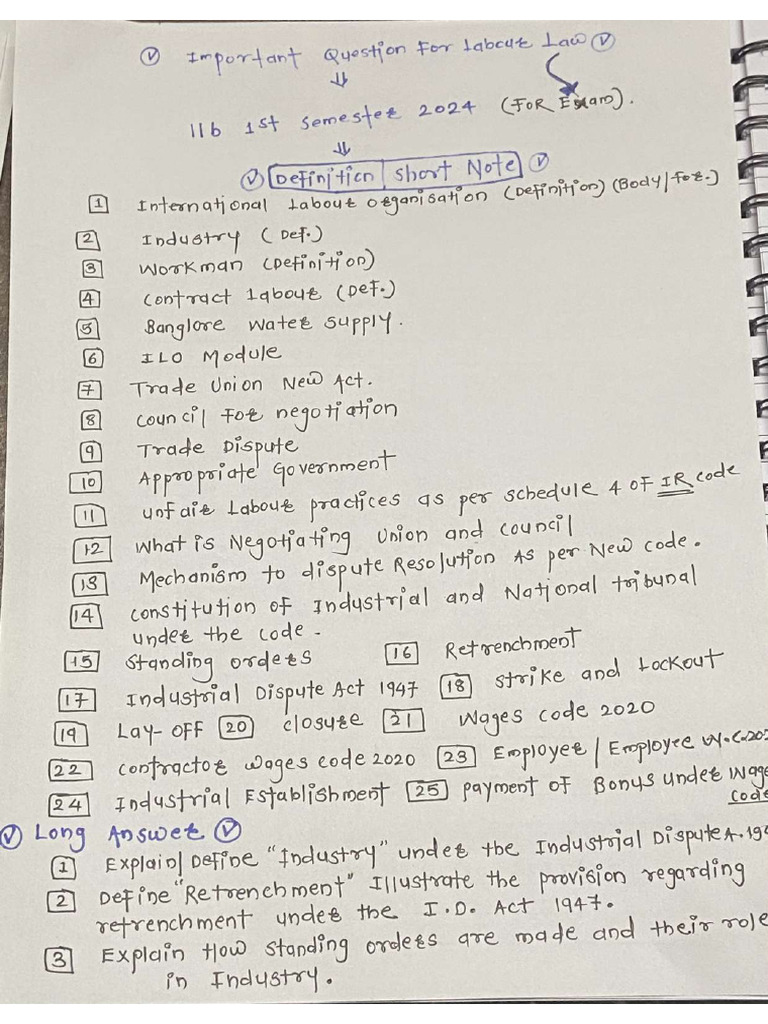 Important Question For Labour Law
llb 1st semester 2024 (FOR Exam).
Definition | Short Note
1 International Labour Organisation (Definition) (Body/for.)
2 Industry (Def.)
3 Workman (Definition)
4 Contract labour (Def.)
5 Banglore water supply.
6 ILO Module
7 Trade Union New Act.
8 Council For negotiation
9 Trade Dispute
10 Appropriate Government
11 unfair Labour practices as per schedule 4 OF IR code
12 What is Negotiating Union and council
13 Mechanism to dispute Resolution As per New code.
14 constitution of Industrial and National tribunal
under the code.
15 Standing orders 16 Retrenchment
17 Industrial Dispute Act 1947 18 strike and Lockout
19 Lay-OFF 20 closure 21 Wages code 2020
22 contractor wages code 2020 23 Employer / Employee
24 Industrial Establishment 25 payment of Bonus under Wage
code
Long Answer
1 Explain/Define "Industry" under the Industrial Dispute A.
2 Define "Retrenchment" Illustrate the provision regarding
retrenchment under the I.D. Act 1947.
3 Explain How standing orders are made and their role
in Industry.